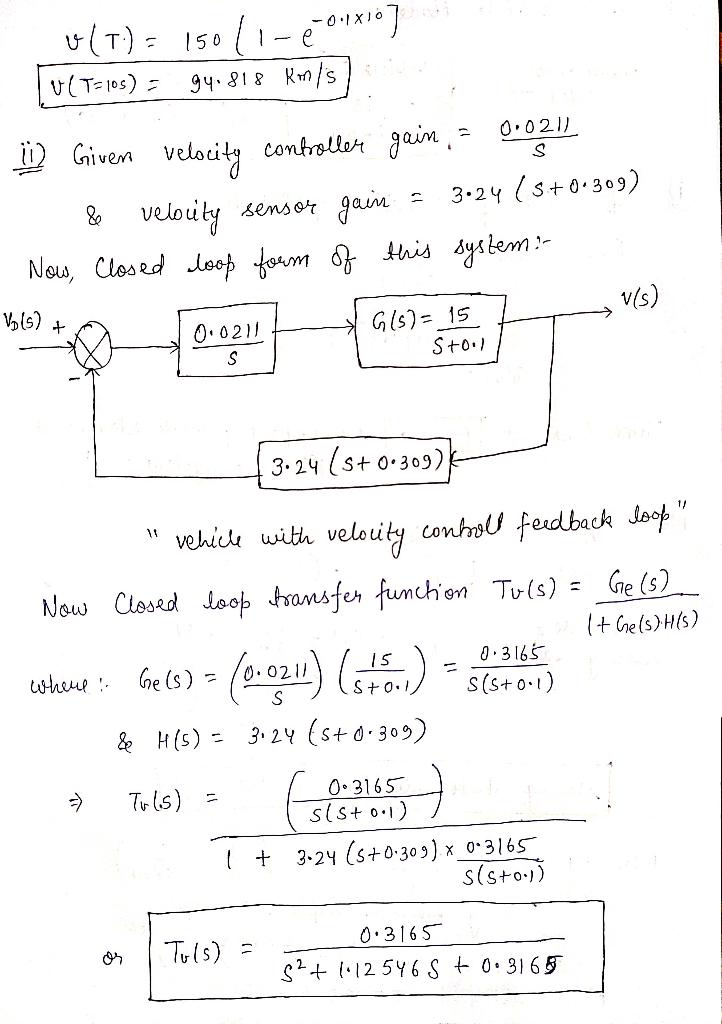 v(T) = 150 (1 - e^{-0.1×10}]
v(T=10s) = 94.818 Km/s
ii) Given velocity controller gain, = 0.0211/S
& velocity sensor gain = 3.24 (S+0.309)
Now, Closed loop form of this system:-
V_D(s) +
0.0211/S
G(s) = 15/S+0.1
V(s)
-
3.24 (S+0.309)
" vehicle with velocity controll feedback loop"
Now Closed loop transfer function Tv(s) = Ge(s)/1+Ge(s).H(s)
where :. Ge(s) = (0.0211/S) (15/S+0.1) = 0.3165/S(S+0.1)
& H(s) = 3.24 (S+0.309)
⇒ Tv(s) = (0.3165/S(S+0.1))/1 + 3.24 (S+0.309) × 0.3165/S(S+0.1)
or Tv(s) = 0.3165/S² + 1.12546 S + 0.3165